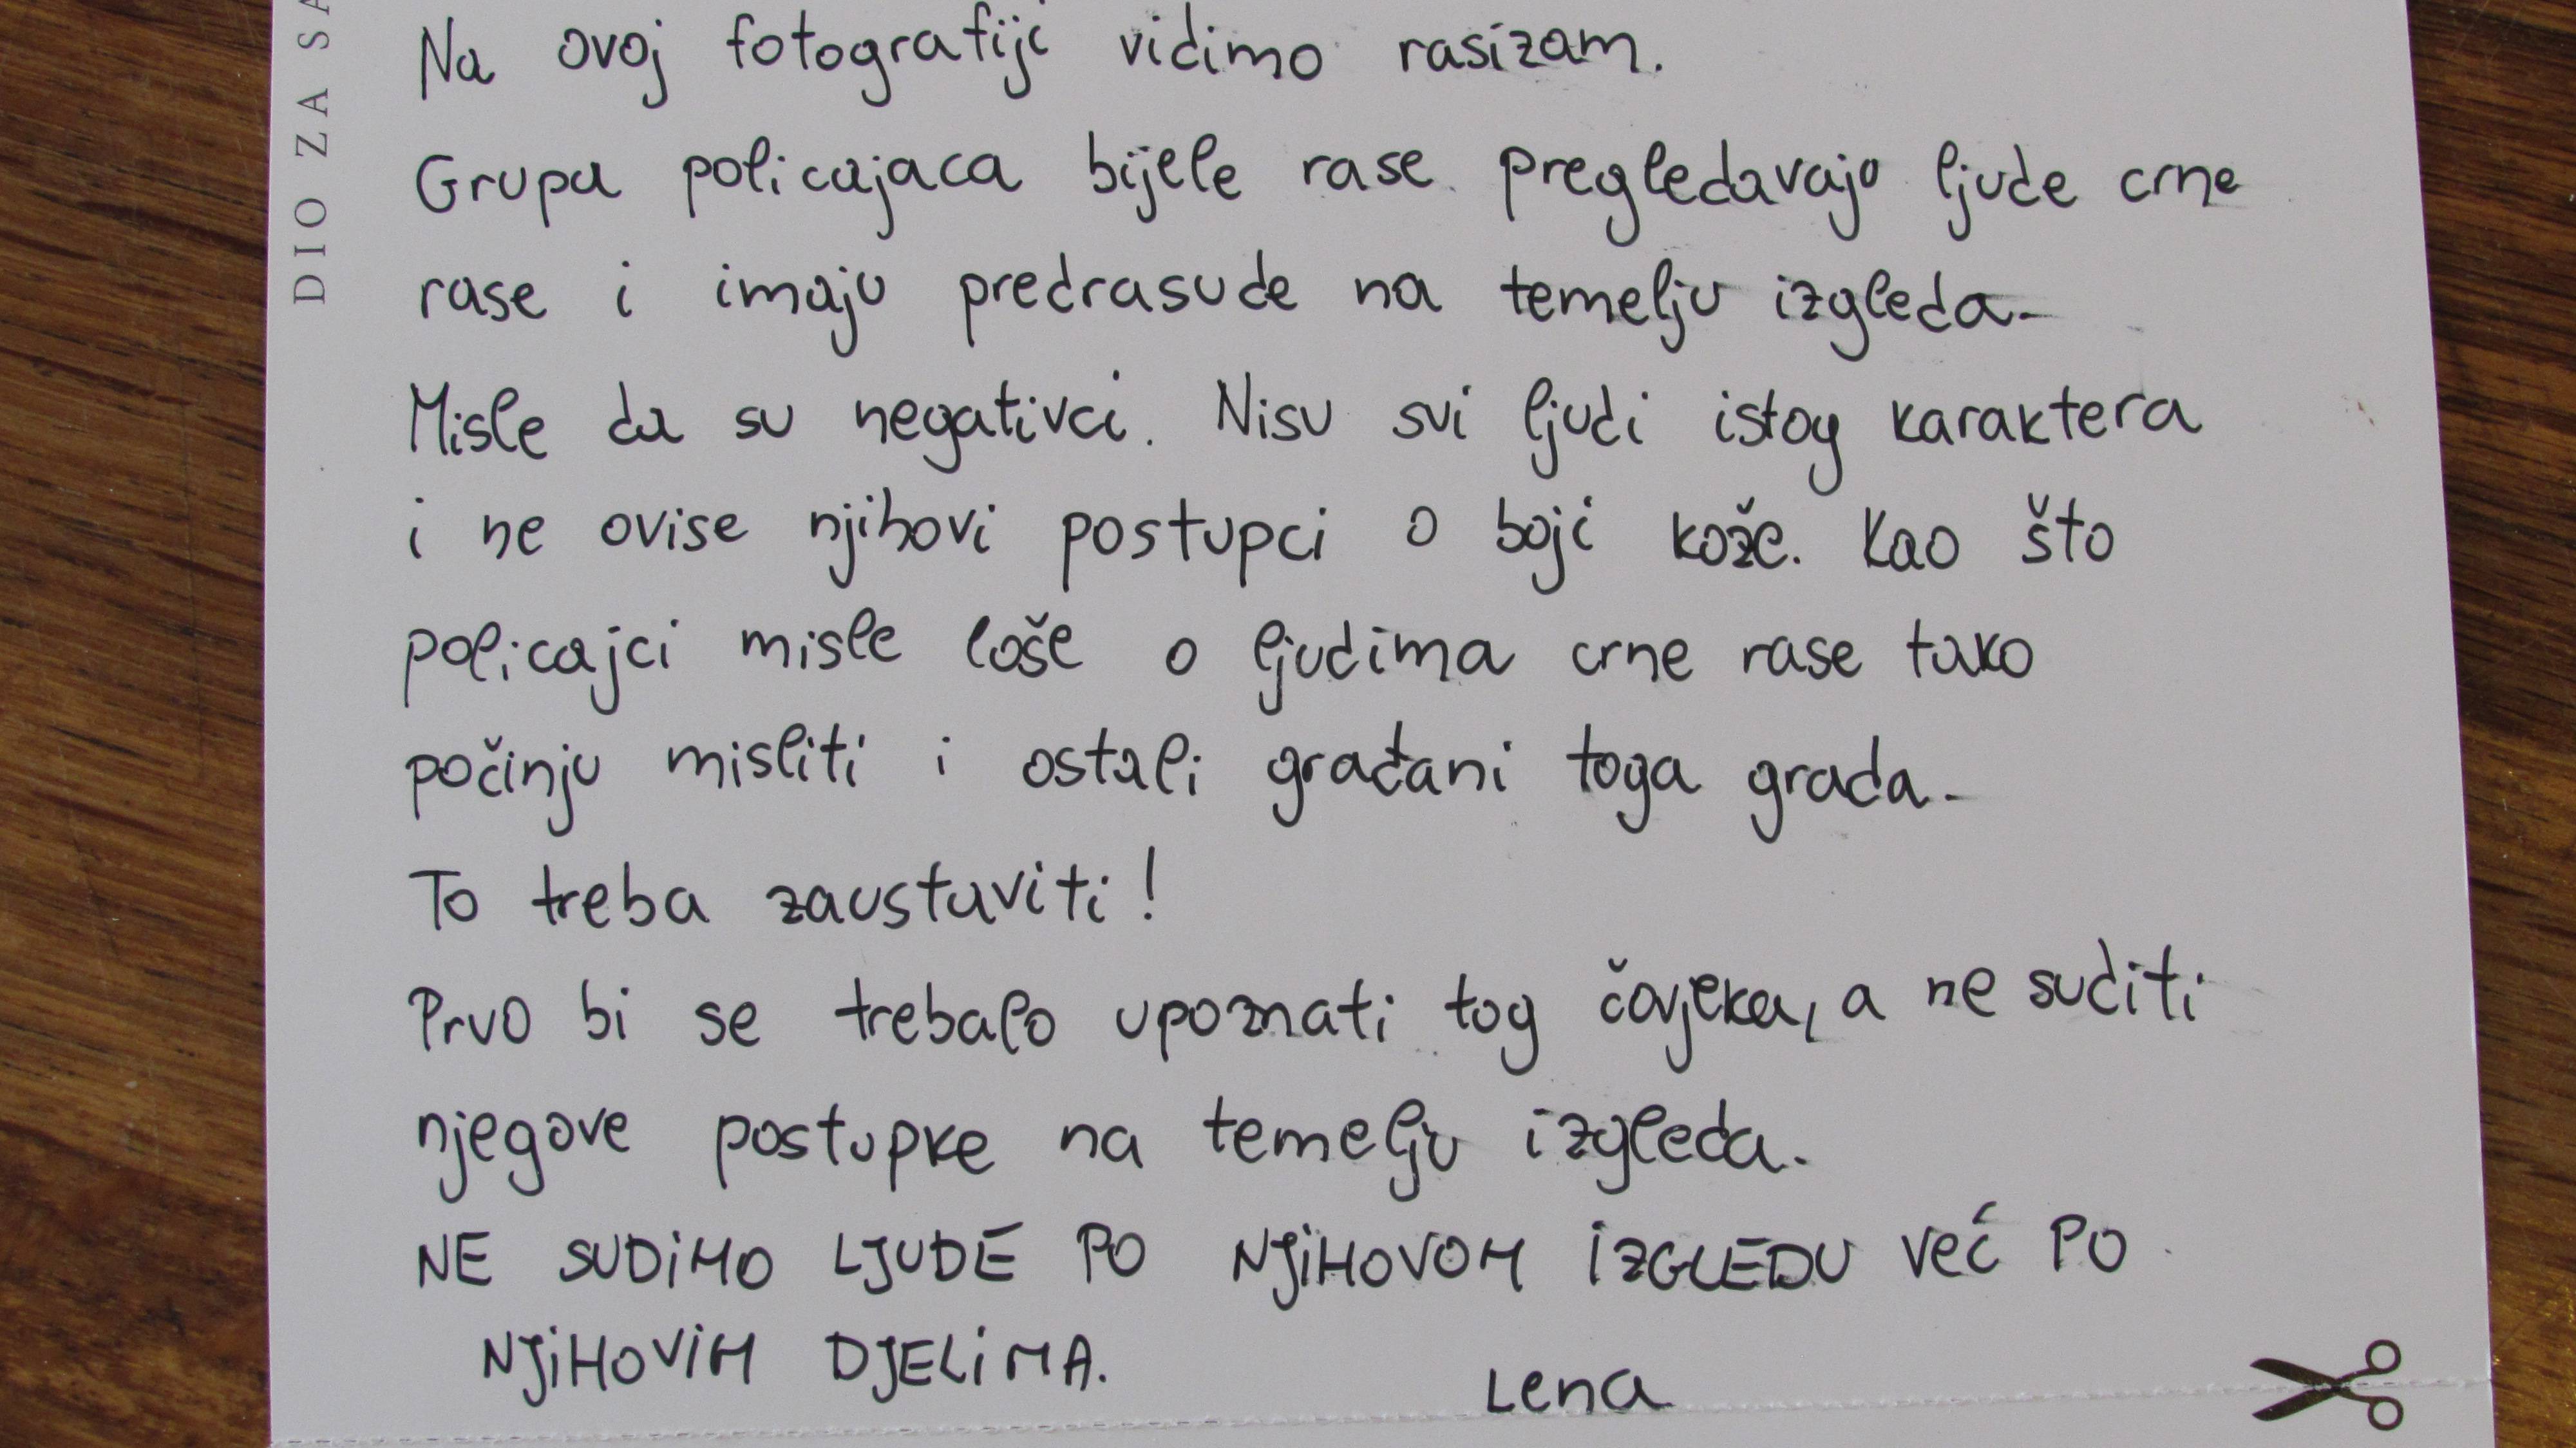 DIO ZA SA
Na ovoj fotografiji vidimo rasizam.
Grupa policajaca bijele rase pregledavaju ljude crne
rase i imaju predrasude na temelju izgleda.
Misle da su negativci. Nisu svi ljudi istog karaktera
i ne ovise njihovi postupci o boji kože. Kao što
policajci misle loše o ljudima crne rase tako
počinju misliti i ostali građani toga grada.
To treba zaustaviti!
Prvo bi se trebalo upoznati tog čovjeka, a ne suditi
njegove postupke na temelju izgleda.
NE SUDIMO LJUDE PO NJIHOVOM IZGLEDU VEĆ PO
NJIHOVIM DJELIMA.
Lena